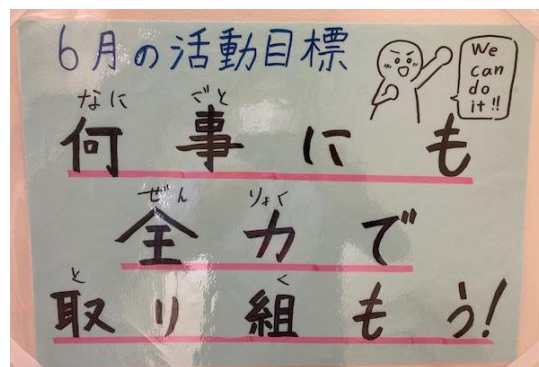 6月の活動目標
We
can
do
it!!
なに ごと
何事にも
ぜん りょく
全力で
と く
取り組もう!